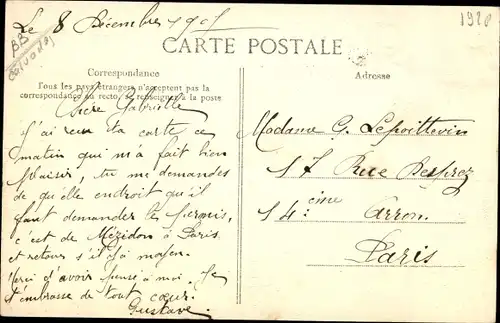 Le 8 Décembre 1905
1920
BB
Calvados
CARTE POSTALE
Correspondance
Tous les pays étrangers n'acceptent pas la
correspondance au recto, se renseigner à la poste
Adresse
Chère Gabrielle
J'ai reçu ta carte ce
matin qui m'a fait bien
plaisir, tu me demandes
de qu'elle endroit qu'il
faut demander le permis,
c'est de Mézidon à Paris
et retour s'il y a moyen.
Merci d'avoir pensé à moi. Je
t'embrasse de tout cœur.
Gustave
Madame G. Lepoittevin
17 Rue Desprez
14 ème Arron.
Paris